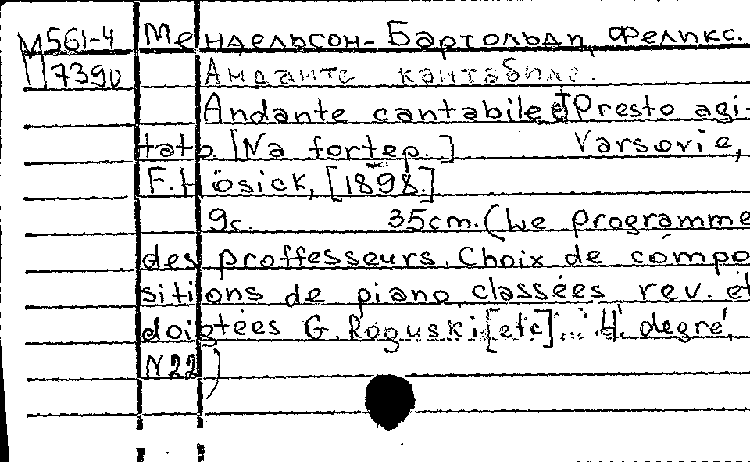 М561-4
7390
Мендельсон-Бартольди, Феликс.
Анданте кантабиле.
Andante cantabile et Presto agi-
tato. [Na fortep.] Varsovie,
F. Hösick, [1898.]
9с. 35cm. (Le programme
des proffesseurs. Choix de compo
sitions de piano classées rev. et
doigtées G. Roguski [etc]... 4. degré,
N 22)